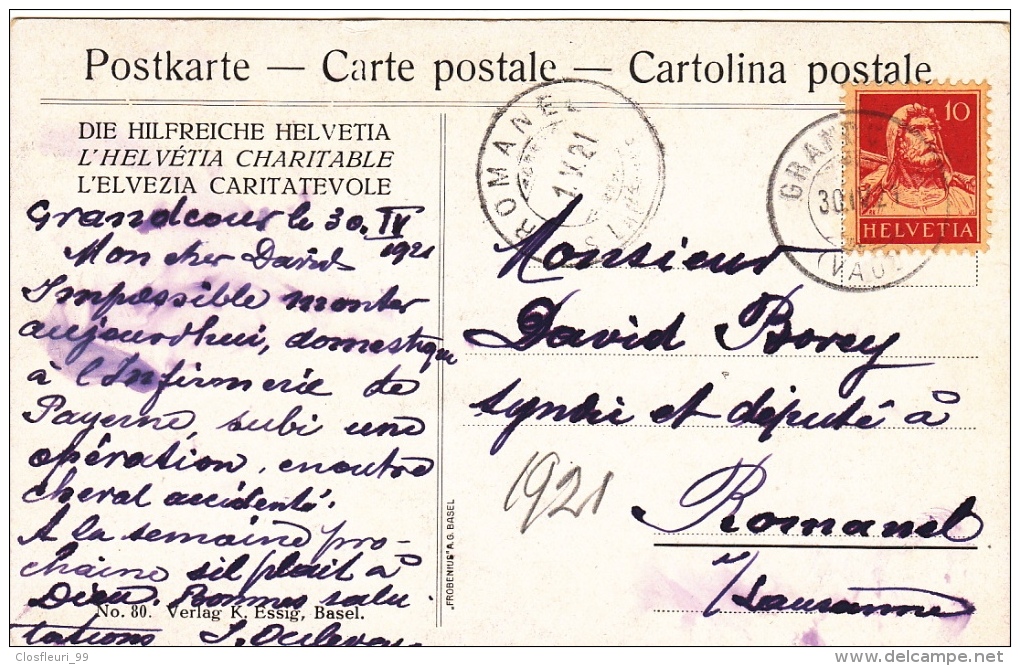 Postkarte — Carte postale — Cartolina postale
DIE HILFREICHE HELVETIA
L'HELVÉTIA CHARITABLE
L'ELVEZIA CARITATEVOLE
Grandcour le 30. IV
1921
Mon cher David
Impossible monter
aujourdhui, domestique
à l'Infirmerie de
Payerne, subi une
opération, en outre
cheval accidenté.
A la semaine pro-
chaine sil plait à
Dieu. Bonnes salu
tations
No. 80. Verlag K. Essig, Basel.
"FROBENIUS" A.G. BASEL
ROMANEL
1.V.21
S/LAUSANNE
GRAND
30.IV.21
(VAUD)
10
HELVETIA
Monsieur
David Borey
syndic et député à
Romanel
s/Lausanne
1921
Closfleuri_99
delcampe.net